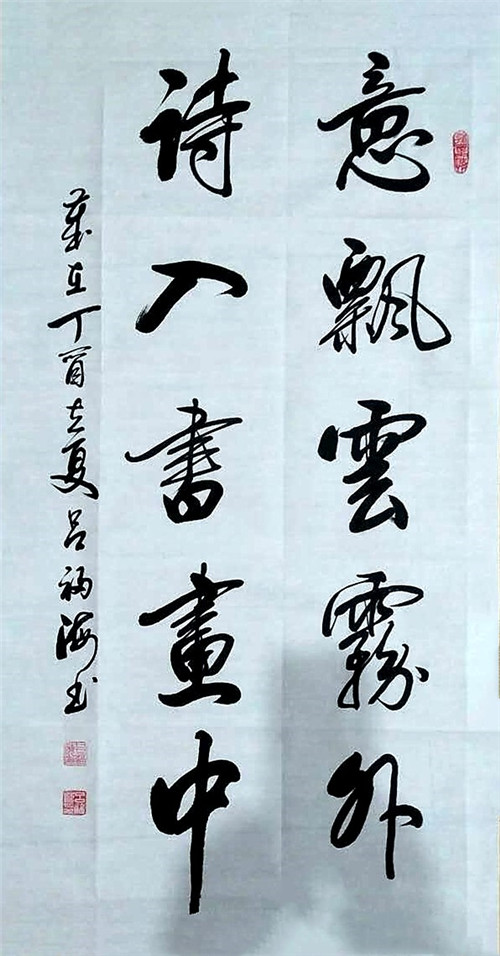 意飘雲霧外
诗入書畫中
歲在丁酉立夏吕福海书